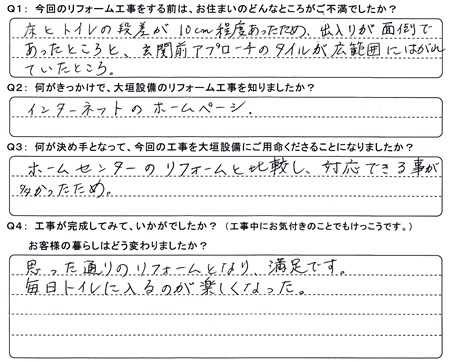 Q1: 今回のリフォーム工事をする前は、お住まいのどんなところがご不満でしたか?
床とトイレの段差が10cm程度あったため、出入りが面倒で
あったところと、玄関前アプローチのタイルが広範囲にはがれ
ていたところ。
Q2: 何がきっかけで、大垣設備のリフォーム工事を知りましたか?
インターネットのホームページ.
Q3: 何が決め手となって、今回の工事を大垣設備にご用命くださることになりましたか?
ホームセンターのリフォームと比較し、対応できる事が
多かったため。
Q4: 工事が完成してみて、いかがでしたか? (工事中にお気付きのことでもけっこうです。)
お客様の暮らしはどう変わりましたか?
思った通りのリフォームとなり、満足です。
毎日トイレに入るのが楽しくなった。